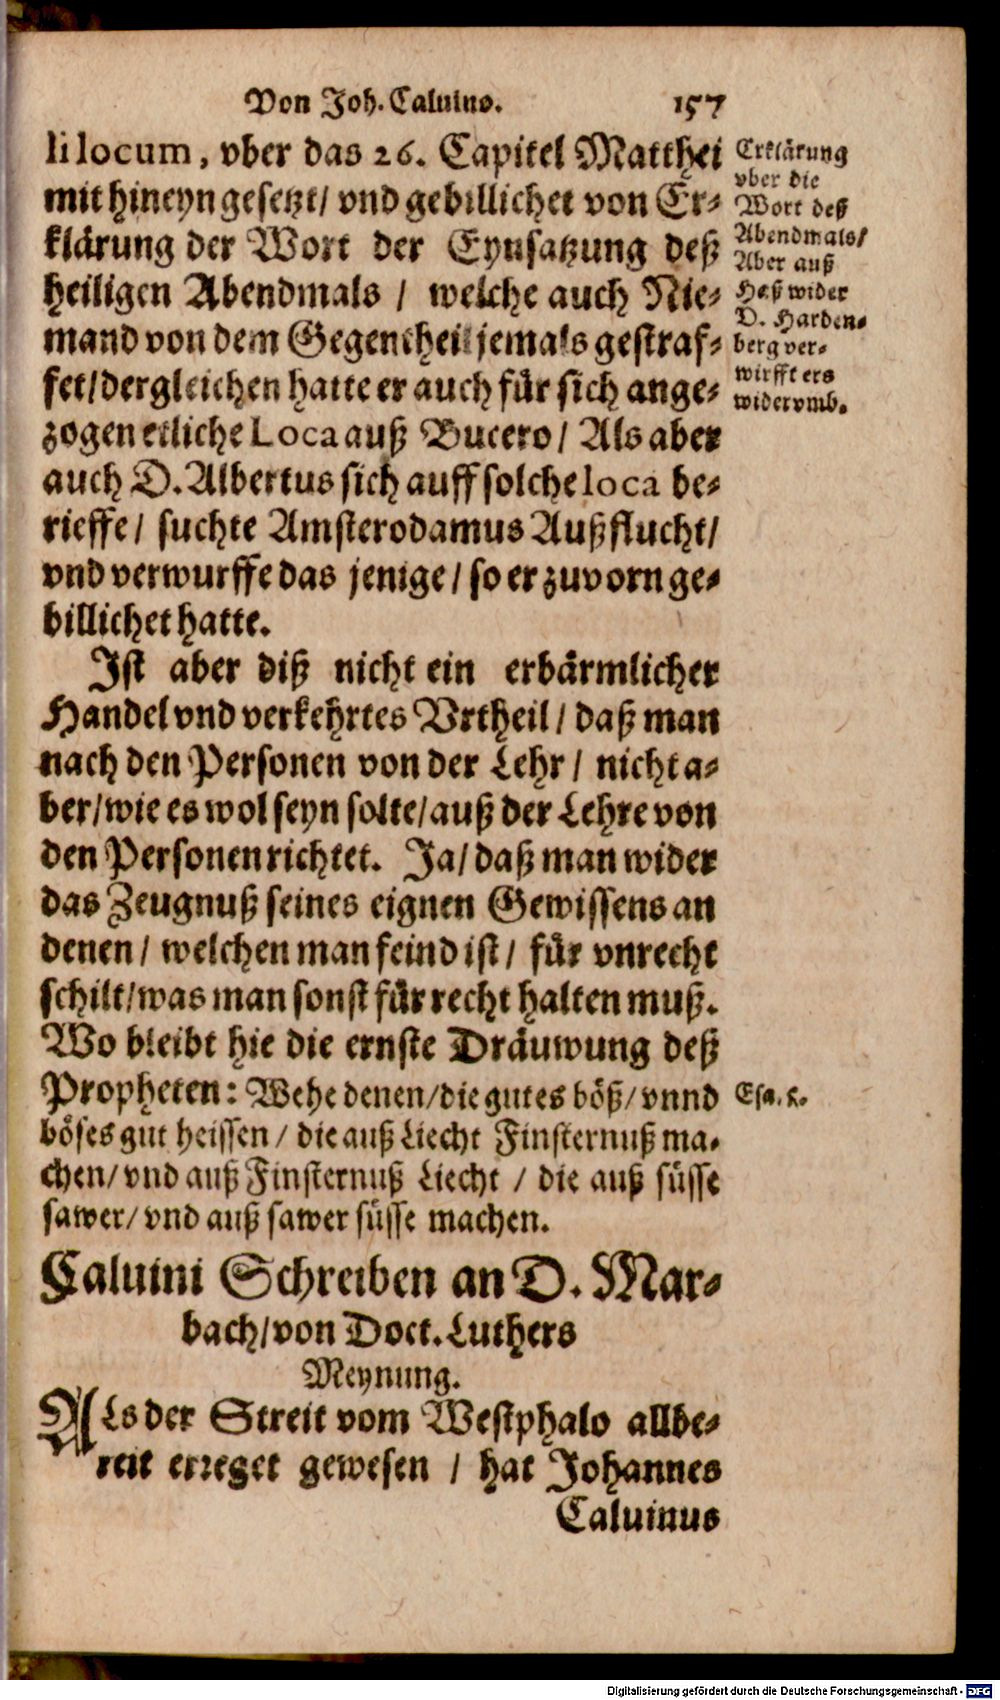 Von Joh. Caluino. 157
li locum, vber das 26. Capitel Matthei
mit hineyn gesetzt/ vnd gebillichet von Er-
klärung der Wort der Eynsatzung deß
heiligen Abendmals / welche auch Nie-
mand von dem Gegentheil jemals gestraf-
fet/dergleichen hatte er auch für sich ange-
zogen etliche Loca auß Bucero/ Als aber
auch D. Albertus sich auff solche loca be-
rieffe/ suchte Amsterodamus Außflucht/
vnd verwurffe das jenige/ so er zuvorn ge-
billichet hatte.
Erklärung
vber die
Wort deß
Abendmals/
Aber auß
Haß wider
D. Harden-
berg ver-
wirfft ers
widervmb.
Ist aber diß nicht ein erbärmlicher
Handel vnd verkehrtes Vrtheil/ daß man
nach den Personen von der Lehr/ nicht a-
ber/wie es wol seyn solte/auß der Lehre von
den Personen richtet. Ja/ daß man wider
das Zeugnuß seines eignen Gewissens an
denen/ welchen man feind ist/ für vnrecht
schilt/was man sonst für recht halten muß.
Wo bleibt hie die ernste Dräuwung deß
Propheten: Wehe denen/die gutes böß/ vnnd
böses gut heissen/ die auß Liecht Finsternuß ma-
chen/ vnd auß Finsternuß Liecht / die auß süsse
sawer/ vnd auß sawer süsse machen.
Esa. 5.
Caluini Schreiben an D. Mar-
bach/von Doct. Luthers
Meynung.
ALs der Streit vom Westphalo allbe-
reit erreget gewesen / hat Johannes
Caluinus
Digitalisierung gefördert durch die Deutsche Forschungsgemeinschaft - DFG